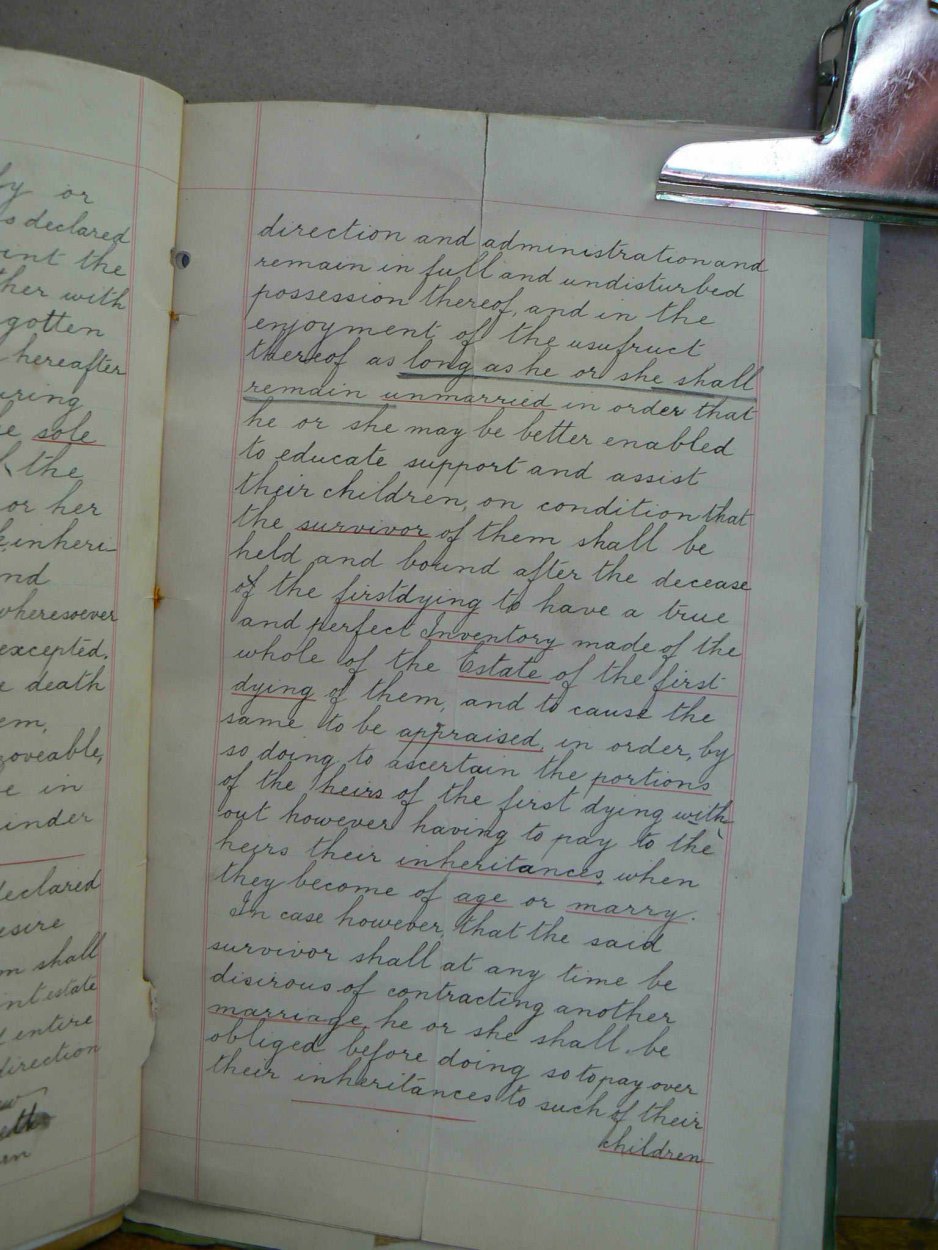 by or
s declared
int the
ther with
gotten
hereafter
uring
e sole
the
or her
inheri-
nd
wheresoever
excepted.
e death
em,
oveable,
e in
inder
declared
esire
m shall
int estate
entire
direction
direction and administration and
remain in full and undisturbed
possession thereof, and in the
enjoyment of the usufruct
thereof as long as he or she shall
remain unmarried in order that
he or she may be better enabled
to educate support and assist
their children, on condition that
the survivor of them shall be
held and bound after the decease
of the firstdying to have a true
and perfect Inventory made of the
whole of the Estate of the first
dying of them, and to cause the
same to be appraised, in order, by
so doing to ascertain the portions
of the heirs of the first dying with
out however having to pay to the
heirs their inheritances, when
they become of age or marry.
In case however, that the said
survivor shall at any time be
disirous of contracting another
marriage, he or she shall be
obliged before doing so to pay over
their inheritances to such of their
children